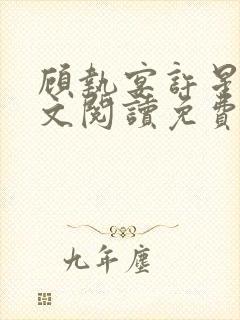 顧執宴許星
文閱讀免費
九年塵